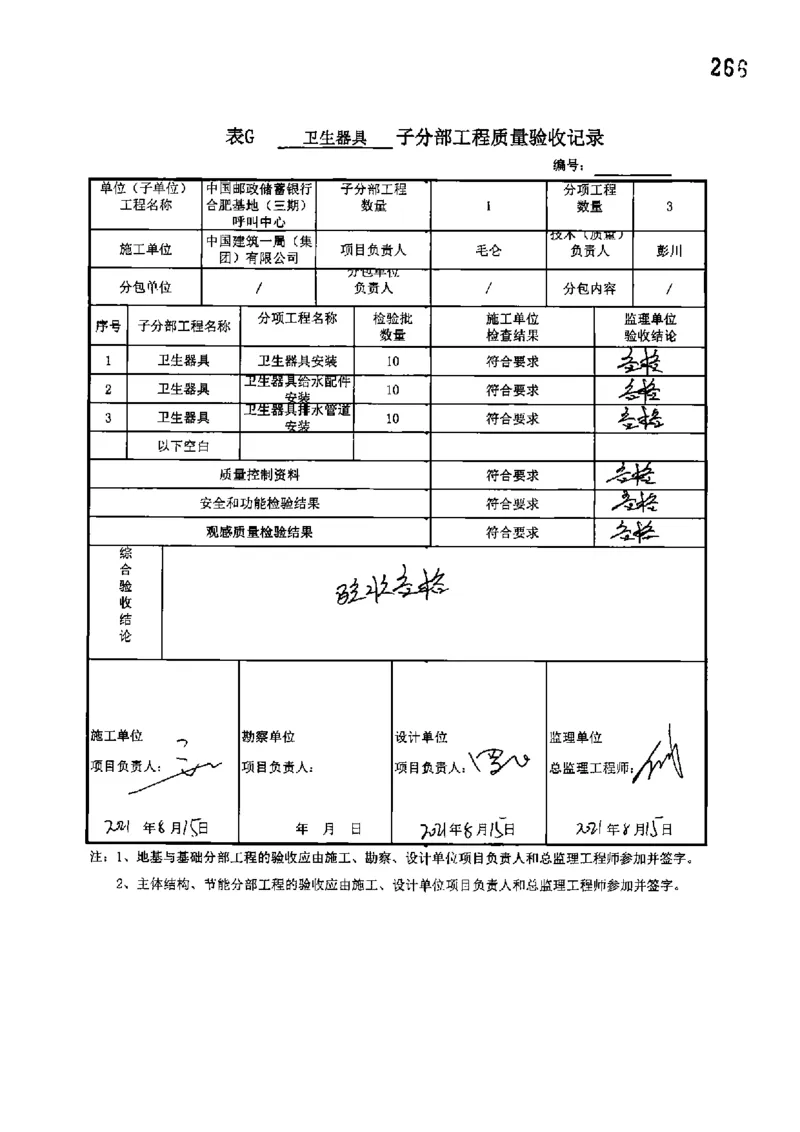 266
表G 卫生器具 子分部工程质量验收记录
编号：
单位（子单位）工程名称 中国邮政储蓄银行合肥基地（三期）呼叫中心 子分部工程数量 1 分项工程数量 3
施工单位 中国建筑一局（集团）有限公司 项目负责人 毛仑 技术（质量）负责人 彭川
分包单位 / 分包单位负责人 / 分包内容 /
序号 子分部工程名称 分项工程名称 检验批数量 施工单位检查结果 监理单位验收结论
1 卫生器具 卫生器具安装 10 符合要求 合格
2 卫生器具 卫生器具给水配件安装 10 符合要求 合格
3 卫生器具 卫生器具排水管道安装 10 符合要求 合格
以下空白
质量控制资料 符合要求 合格
安全和功能检验结果 符合要求 合格
观感质量检验结果 符合要求 合格
综合验收结论 验收合格
施工单位 勘察单位 设计单位 监理单位
项目负责人： 项目负责人： 项目负责人： 总监理工程师：
2021 年8月15日 年 月 日 2021年8月15日 2021年8月15日
注：1、地基与基础分部工程的验收应由施工、勘察、设计单位项目负责人和总监理工程师参加并签字。
2、主体结构、节能分部工程的验收应由施工、设计单位项目负责人和总监理工程师参加并签字。